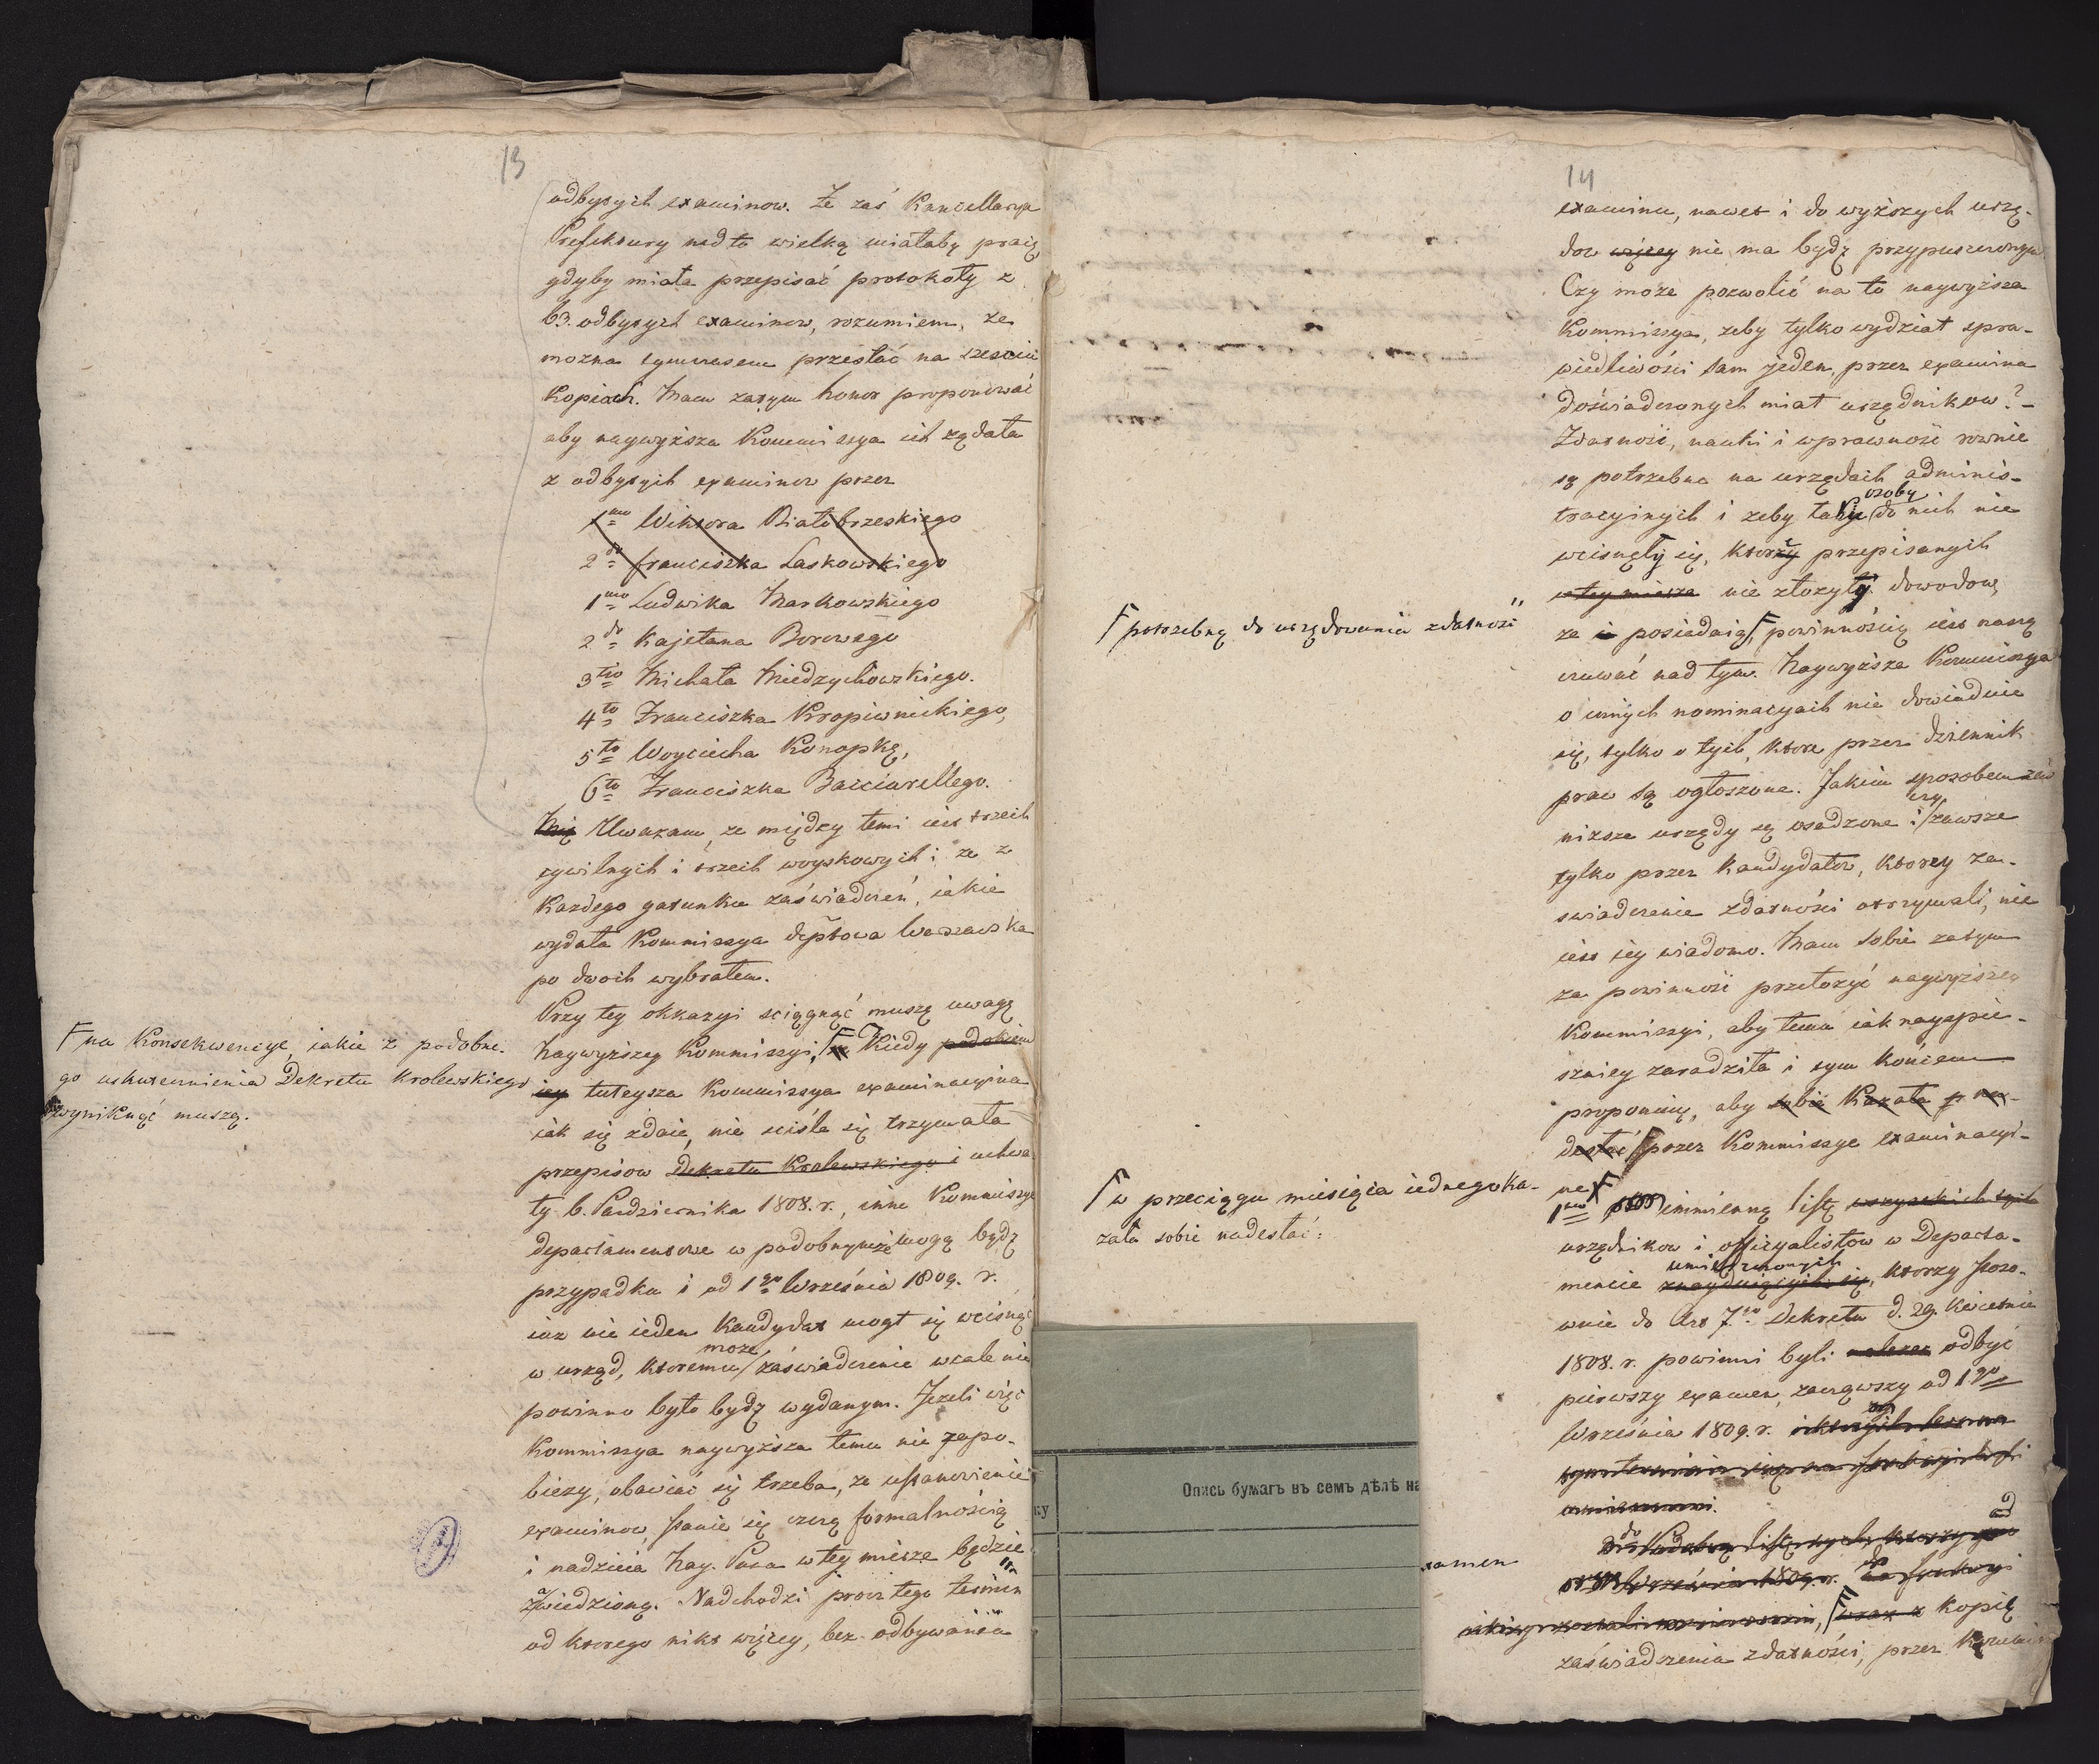 13
odbytych examinow. Że zaś Kancellarya
Prefektury nad to wielką miałaby pracę,
gdyby miała przepisać protokoły z
63. odbytych examinow, rozumiem, że
można tymczasem przestać na sześciu
Kopiach. Mam zatym honor proponować
aby naywyższa Kommissya ich żądała
z odbytych examinow przez
1mo Wiktora Białobrzeskiego
2do franciszka Laskowskiego
1mo Ludwika Markowskiego
2do Kajetana Borowego
3tio Michała Miedzychowskiego.
4to Franciszka Kropiwnickiego,
5to Woyciecha Konopkę,
6to Franciszka Bacciarellego.
Uważam, że między temi iest trzech
cywilnych i trzech woyskowych i że z
każdego gatunku zaświadczeń, iakie
wydała Kommissya dęptowa Warszawska
po dwoch wybrałem.
Przy tey okkazyi sciągnąć muszę uwagę
Naywyższey Kommissyi, Kiedy
iey tuteysza Kommissya examinacyina
iak się zdaie, nie sciśle się trzymała
przepisow Dekretu Krolewskiego i uchwa
ły 6. Pazdziernika 1808. r., inne Kommissye
departamentowe w podobnymże mogą bydź
przypadku i od 1go Września 1809. r.
iuż nie ieden Kandydat mogł się wcisnąć
może
w urząd, ktoremu zaświadczenie wcale nie
powinno było bydź wydanym. Jeżeli więc
Kommissya naywyższa temu nie zapo-
bieży, obawiać się trzeba, że ustanowienie
examinow stanie się czczą formalnością
i nadzieia Nay. Pana w tey mierze będzie
zwiedzioną. Nadchodzi prócz tego termin
od ktorego nikt więcey, bez odbywania
na Konsekwencye, iakie z podobne-
go uskutecznienia Dekretu Krolewskiego
wyniknąć muszą.
14
examinu, nawet i do wyższych urzę-
dow więcey nie ma bydź przypuszczonym.
Czy może pozwolić na to naywyższa
Kommissya, żeby tylko wydział spra-
wiedliwości sam jeden, przez examina
doświadczonych miał urzędnikow? -
Zdatność, nauki i wprawność rownie
są potrzebne na urzędach adminis-
osoby
tracyinych i żeby takie do nich nie
wcisnęły się, ktore przepisanych
w tey mierze nie złożyły dowodow,
że posiadaią, powinnością iest naszą
czuwać nad tym. Naywyższa Kommissya
o innych nominacyach nie dowiaduie
się, tylko o tych, ktore przez dziennik
praw są ogłoszone. Jakim sposobem zaś
czy
niższe urzędy są osadzone i zawsze
tylko przez Kandydatow, ktorzy za-
swiadczenie zdatności otrzymali, nie
iest iey wiadomo. Mam sobie zatym
za powinność przełożyć naywyższey
Kommissyi, aby temu iak nayspie-
szniey zaradziła i tym końcem
proponuię, aby sobie kazała
przez Kommissye examinacyi-
ne
1mo imienną listę wszystkich tych
urzędnikow i officyalistow w Departa-
umieszczonych
mencie znayduiących się, ktorzy stoso-
wnie do Art 7go Dekretu d. 29. Kwietnia
1808. r. powinni byli odbyć
pierwszy examen, zacząwszy od 1go
Września 1809. r.
Kopię
zaświadczenia zdatności, przez
potrzebną do urzędowania zdatność
w przeciągu miesiąca iednego ka-
zała sobie nadesłać:
Опись бумагъ въ семъ дѣлѣ на
ку